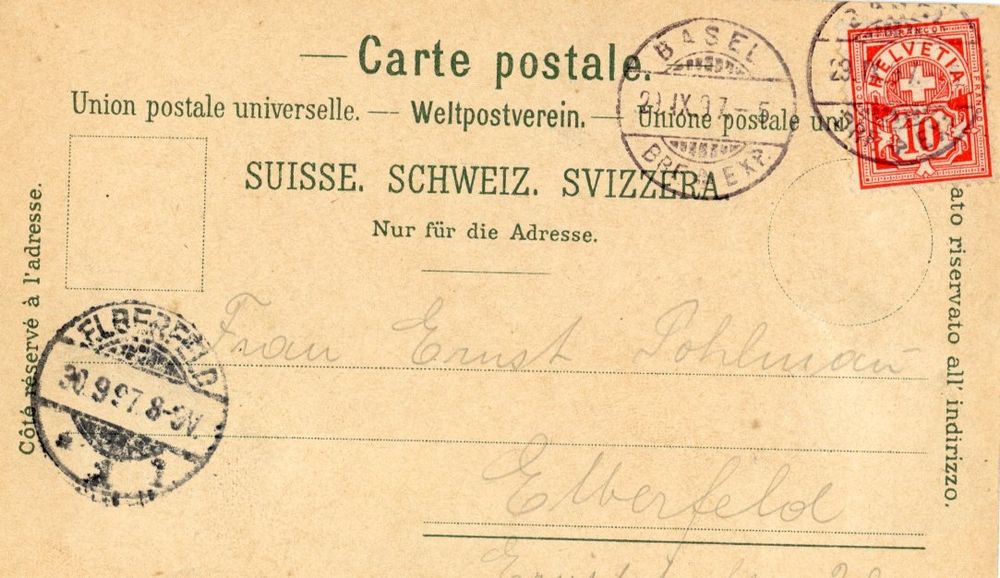 — Carte postale.
Union postale universelle. — Weltpostverein. — Unione postale uni
SUISSE. SCHWEIZ. SVIZZERA.
Nur für die Adresse.
Côté réservé à l'adresse.
ato riservato all' indirizzo.
BASEL
IX.97-5
BRF. EXP.
HELVETIA
FRANCO
10
ELBERFELD
30.9.97.8-9V.
* 1 1
Frau Ernst Pohlmann
Elberfeld